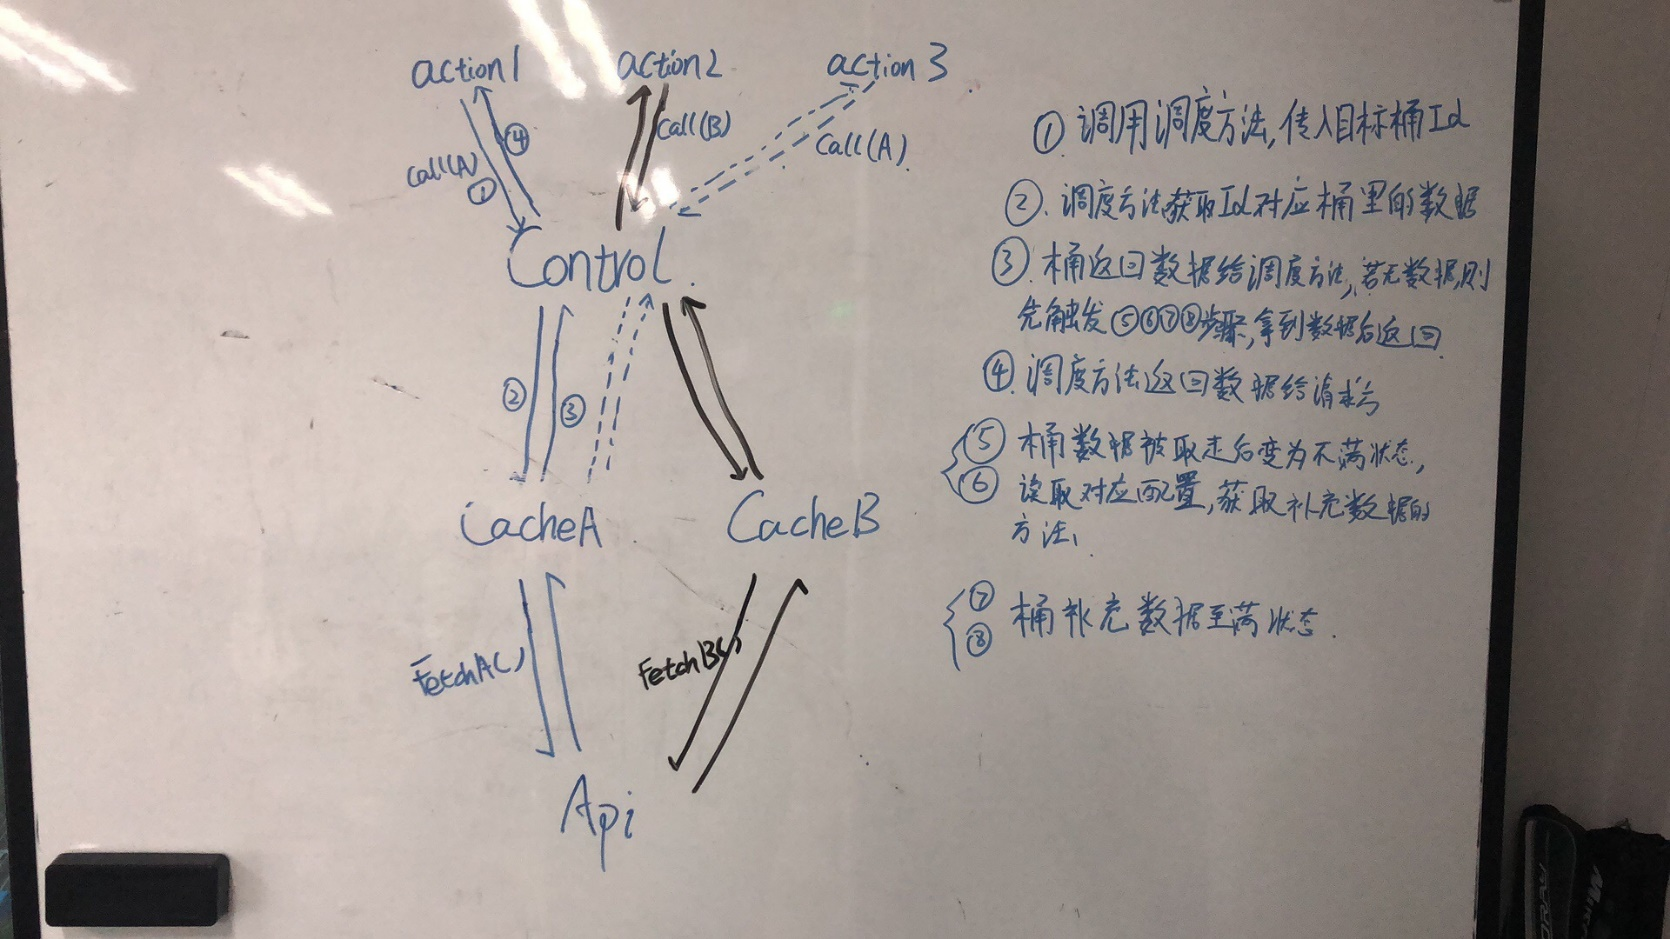 action1
action2
action3
call(A)
①
④
call(B)
call(A)
Control
②
③
CacheA
CacheB
FetchA()
FetchB()
Api
① 调用调度方法,传入目标桶Id
②. 调度方法获取Id对应桶里的数据
③. 桶返回数据给调度方法,若无数据,则
先触发⑤⑥⑦⑧步骤,拿到数据后返回
④. 调度方法返回数据给请求方
⑤ 桶数据被取走后变为不满状态,
⑥ 读取对应配置,获取补充数据的
方法、
⑦
⑧ 桶补充数据至满状态.